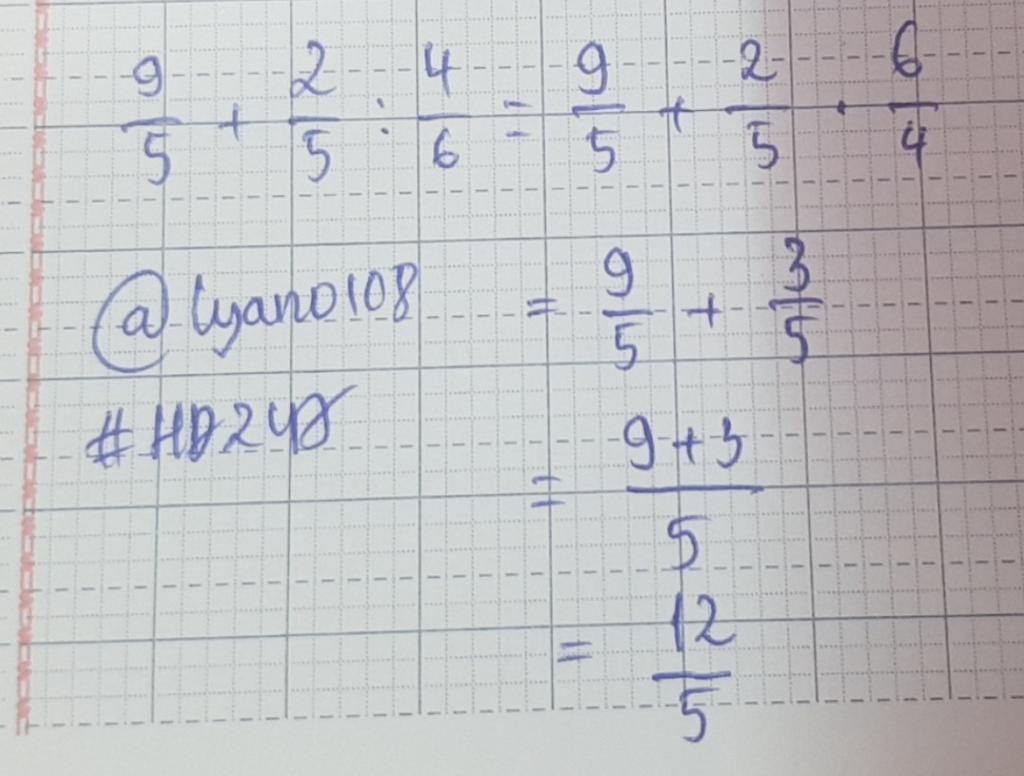 9/5 + 2/5 : 4/6 = 9/5 + 2/5 · 6/4
@lyano108 = 9/5 + 3/5
= (9+3)/5
= 12/5